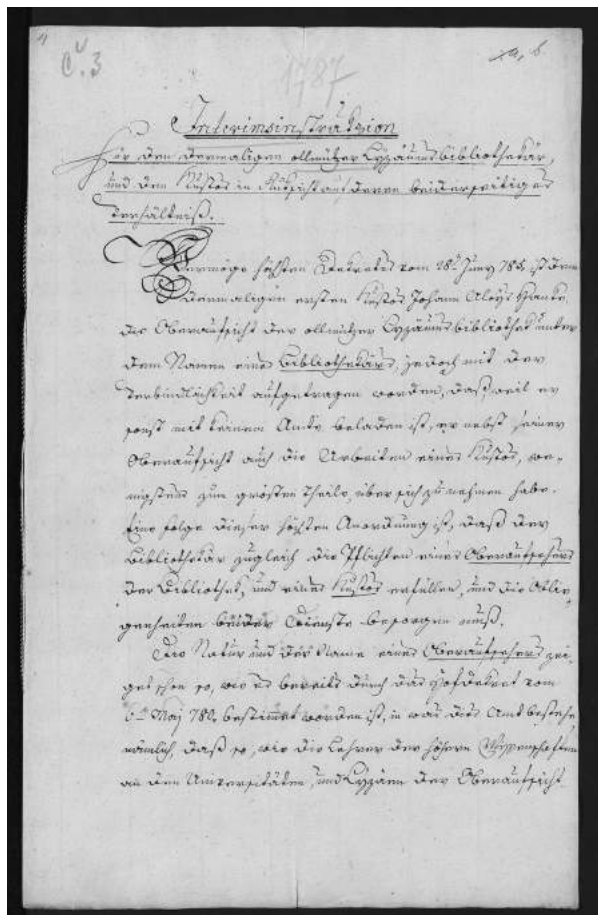 C. 3
1787
a, b
Interimsinstrukzion
Für den dermaligen ollmützer Lyzäumsbibliothekär,
und den Kustos in Rüksicht auf deren beiderseitiges
Verhältniß.
Vermöge höchsten Dekretes vom 28t Juny 785 ist dem
dermaligen ersten Kustos Johann Aloys Hanke
die Oberaufsicht der ollmützer Lyzäumsbibliothek unter
dem Namen eines Bibliothekärs, jedoch mit der
Verbindlichkeit aufgetragen worden, daß, weil er
sonst mit keinem Amte beladen ist, er nebst seiner
Oberaufsicht auch die Arbeiten eines Kustos, we-
nigstens zum grösten Theile, über sich zu nehmen habe.
Eine Folge dieser höchsten Anordnung ist, daß der
Bibliothekär zugleich die Pflichten eines Oberaufsehers
der Bibliothek, und eines Kustos erfüllen, und die Oblie-
genheiten beider Dienste besorgen muß.
Die Natur und der Name eines Oberaufsehers zei-
get schon so, wie es bereits durch das Hofdekret vom
Maj 780 bestimmt worden ist, in was dies Amt bestehe
nämlich, daß so, wie die Lehrer der höhern Wissenschaften
an den Universitäten, und Lyzäen der Oberaufsicht